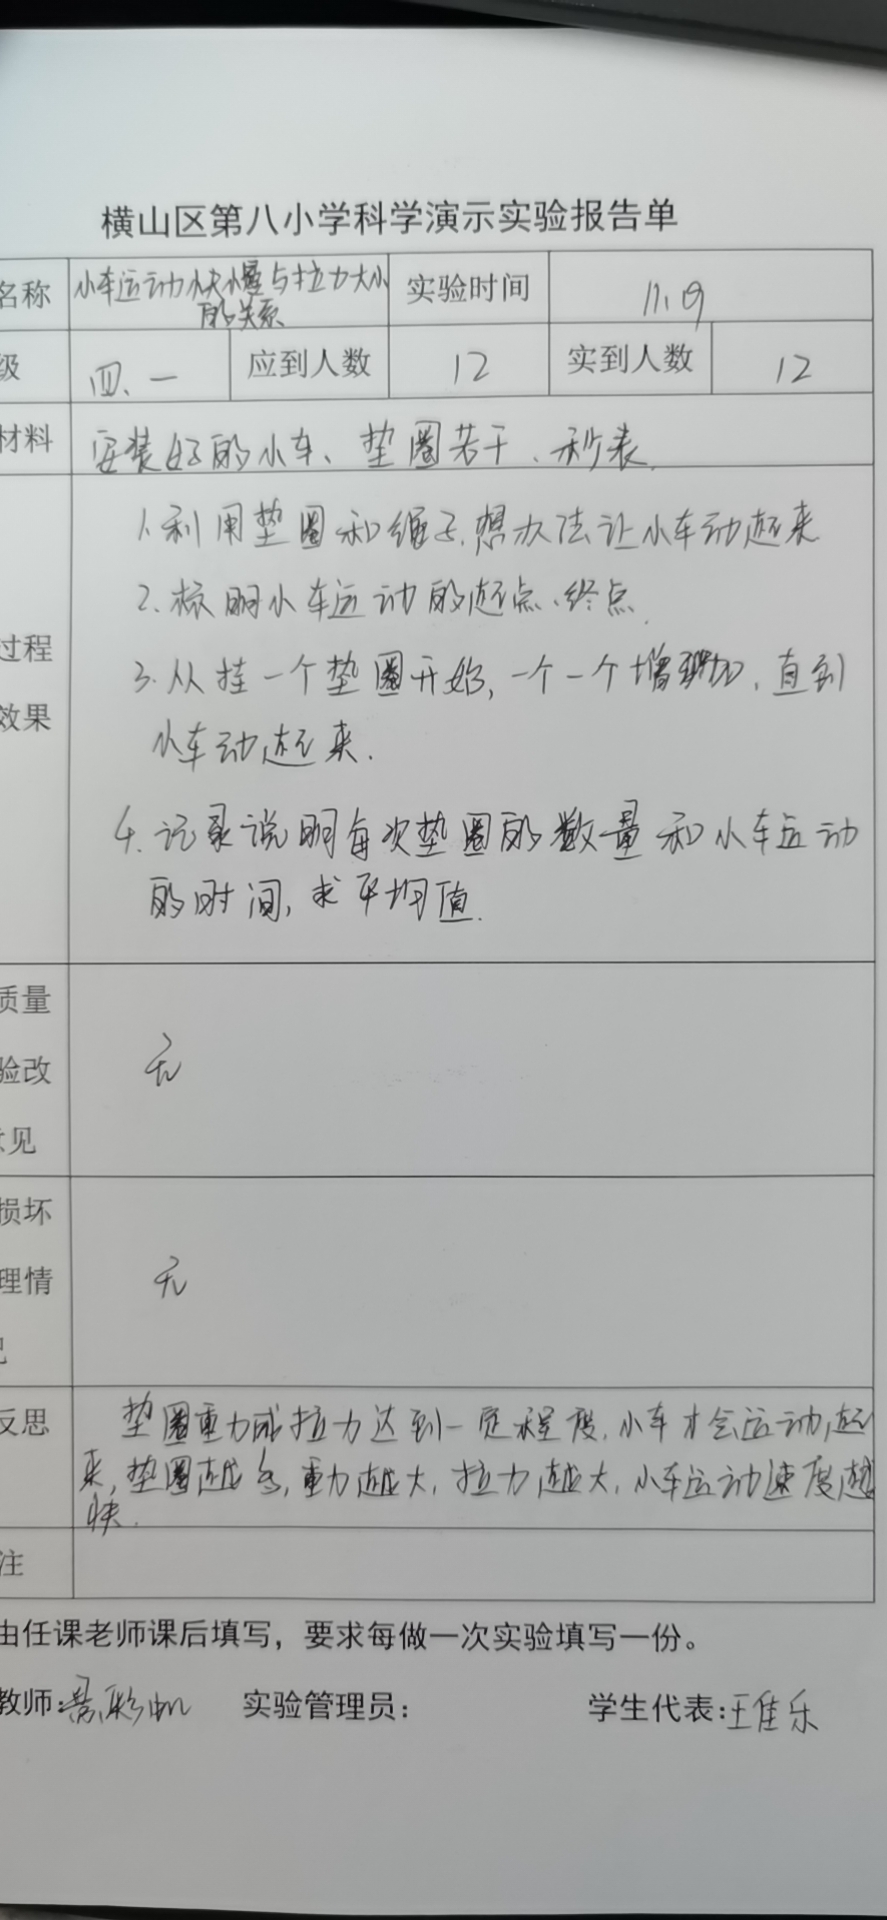 横山区第八小学科学演示实验报告单
名称 小车运动快慢与拉力大小 实验时间 11.9
的关系
级 四、一 应到人数 12 实到人数 12
材料 安装好的小车、垫圈若干、秒表.
1.利用垫圈和绳子,想办法让小车动起来
2.标明小车运动的起点、终点.
过程
3.从挂一个垫圈开始,一个一个增加,直到
效果
小车动起来.
4.记录说明每次垫圈的数量和小车运动
的时间,求平均值.
质量
验改
意见
无
损坏
理情
况
无
反思 垫圈重力或拉力达到一定程度,小车才会运动起
来,垫圈越多,重力越大,拉力越大,小车运动速度越
快.
注
由任课老师课后填写，要求每做一次实验填写一份。
教师: 实验管理员： 学生代表:王佳乐